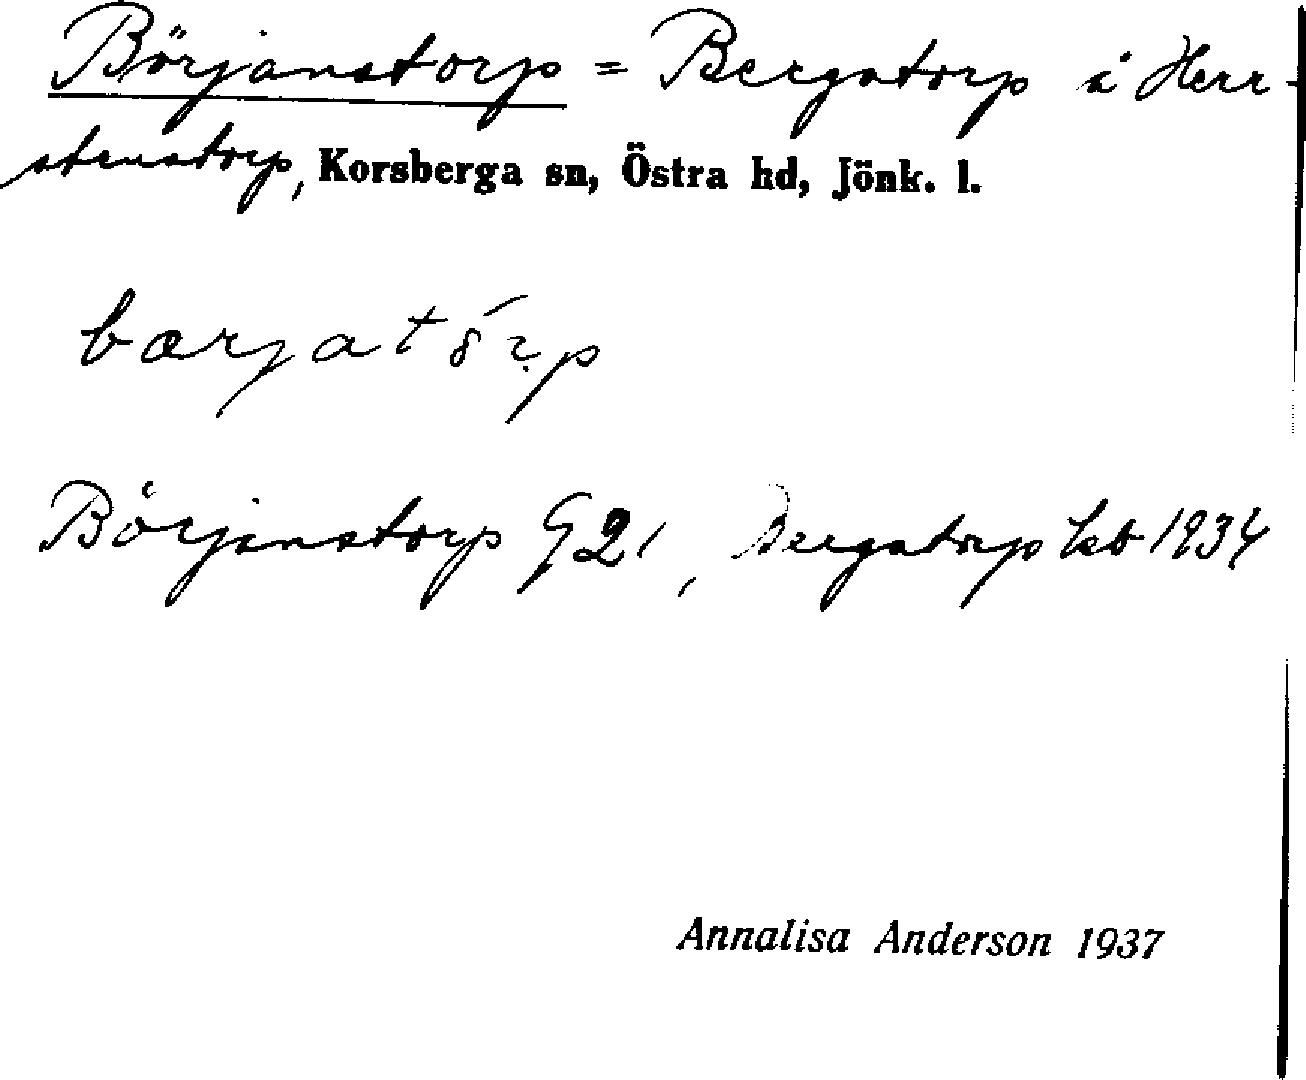 Börjanstorp = Bergatorp i Herr-
stenstorp, Korsberga sn, Östra hd, Jönk. l.
bærjatórp
Börjanstorp G21, Bergatorp kb 1934
Annalisa Anderson 1937